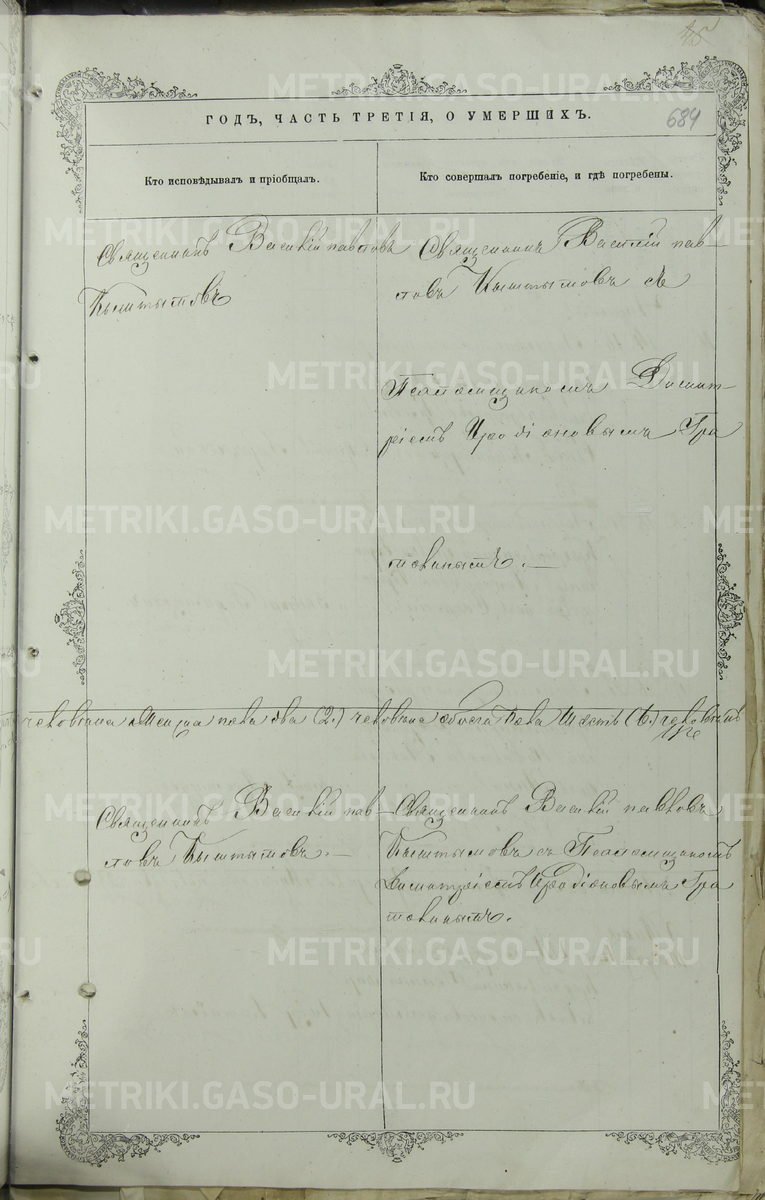 684
ГОДЪ, ЧАСТЬ ТРЕТІЯ, О УМЕРШИХЪ.
Кто исповѣдывалъ и пріобщалъ.
Кто совершалъ погребеніе, и гдѣ погребены.
Священникъ Василій Павловъ
Кыштымовъ
Священникъ Василій Пав-
ловъ Кыштымовъ съ
Псаломщикомъ Димит-
ріемъ Иродіоновымъ
человѣка женска пола два (2.) человѣка обоего пола шесть (6.) человѣкъ
Священникъ Василій Пав-
ловъ Кыштымовъ.—
Священникъ Василій Павловъ
Кыштымовъ съ Псаломщикомъ
Димитріемъ Иродіоновымъ
METRIKI.GASO-URAL.RU